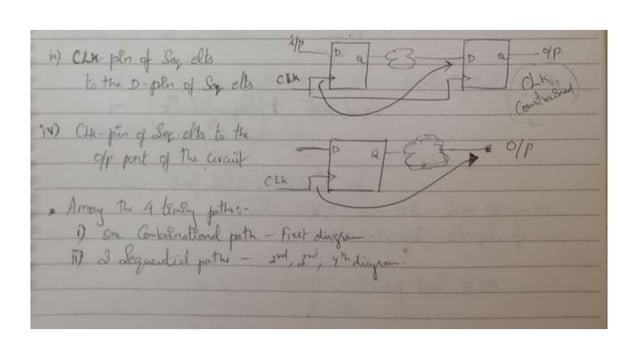 iii) CLK-pin of Seq elts
to the D-pin of Seq elts
i/p
D
Q
D
Q
o/p
CLK
CLK
Constrained
iv) Clk-pin of Seq elts to the
o/p port of the circuit
D
Q
O/p
CLK
Among the 4 timing paths:-
i) one Combinational path - First diagram.
ii) 3 Sequential paths - 2nd, 3rd, 4th diagram.